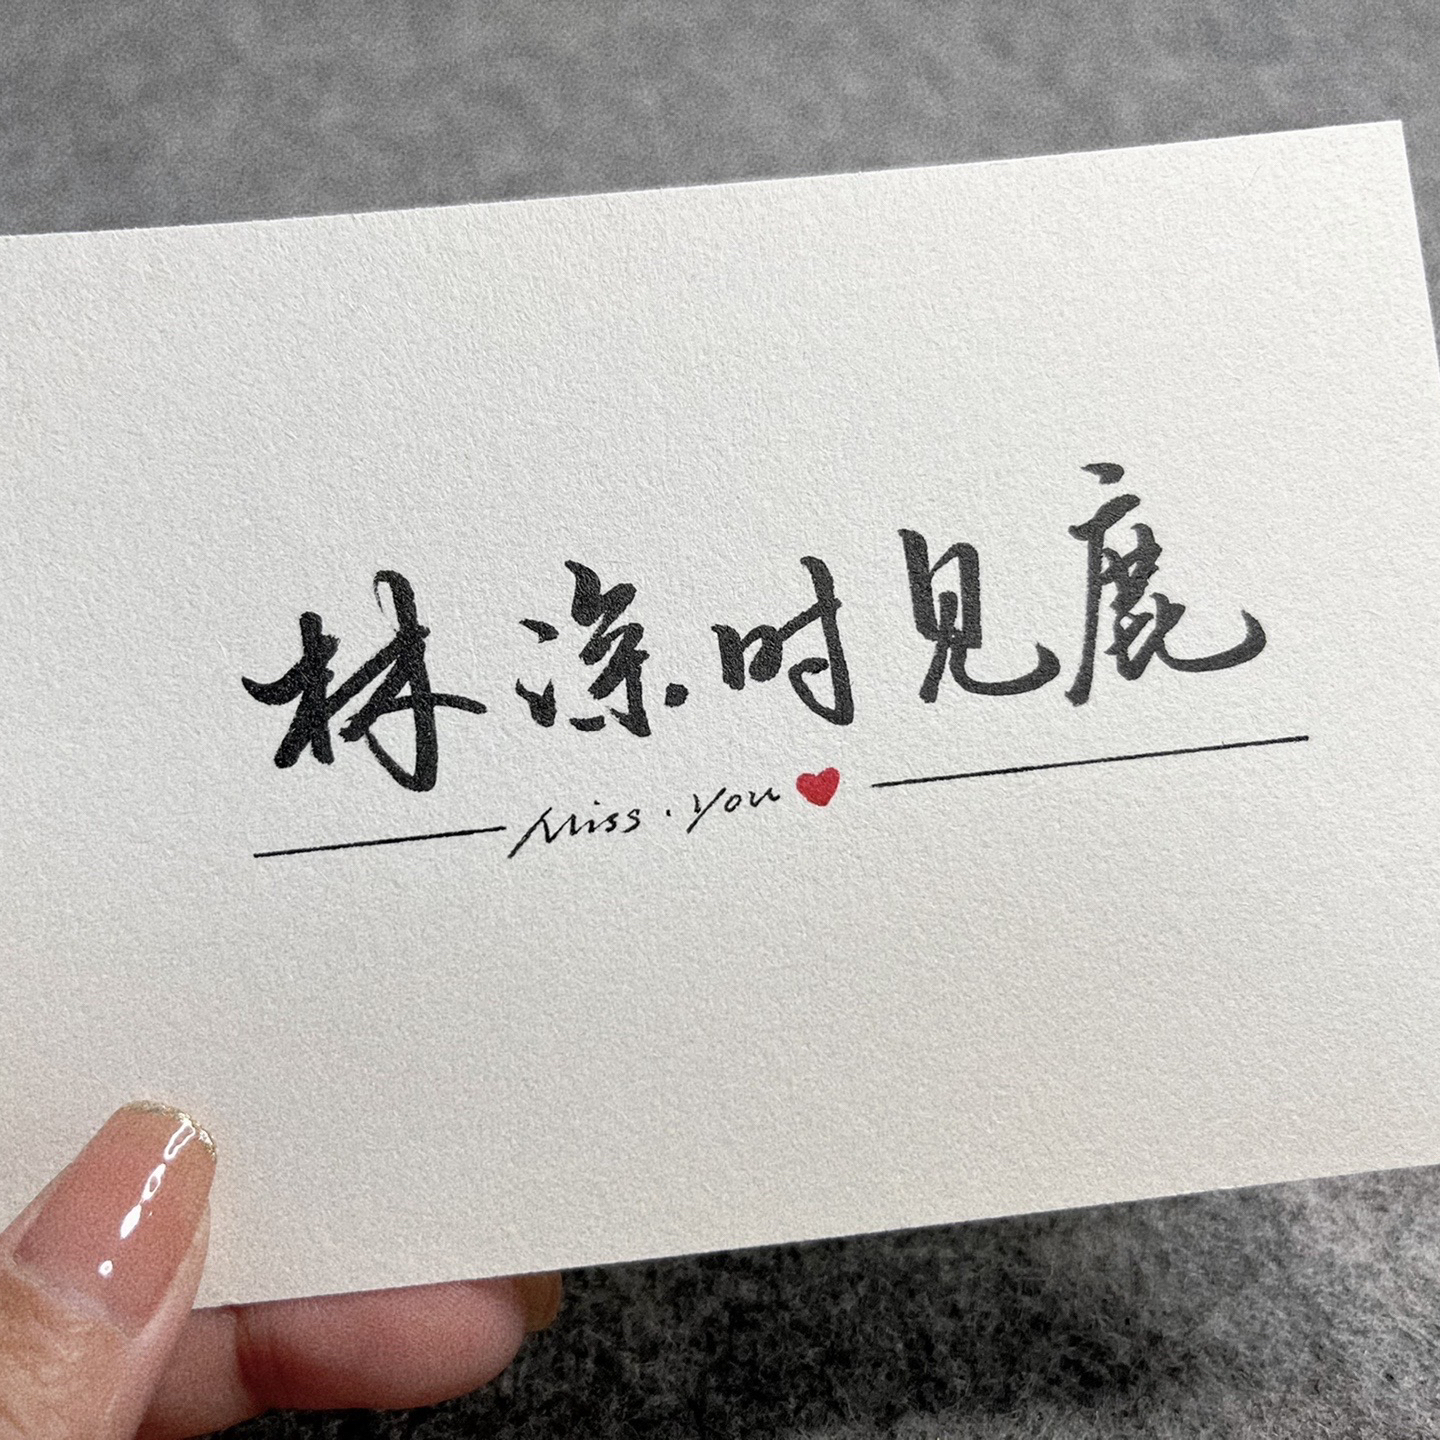 林深时见鹿
Miss · You